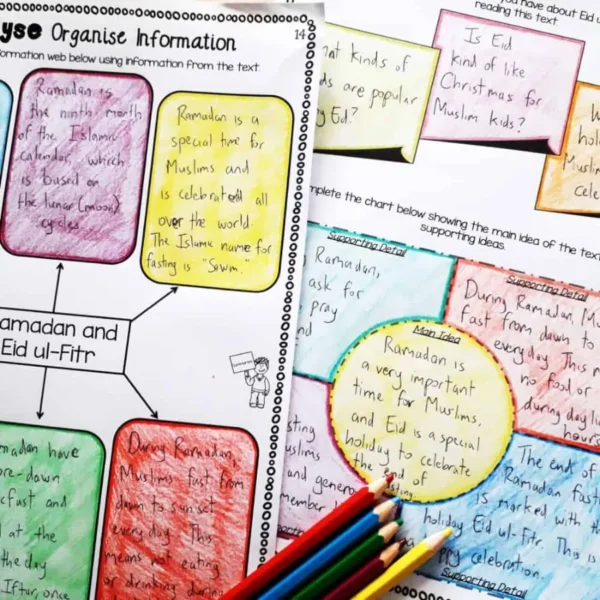 yse Organise Information
14
formation web below using information from the text.
Ramadan is
the ninth month
of the Islamic
calendar, which
is based on
the lunar (moon)
cycles.
Ramadan is a
special time for
Muslims and
is celebrated all
over the world.
The Islamic name for
fasting is "Sawm."
amadan and
Eid ul-Fitr
madan have
re-dawn
cfast and
at the
the day
Iftar, once
During Ramadan,
Muslims fast from
dawn to sunset
every day. This
means not eating
or drinking during
you have about Eid u
reading this text.
hat kinds of
ds are popular
Eid?
Is Eid
kind of like
Christmas for
Muslim kids?
holi
Muslim
cele
mplete the chart below showing the main idea of the text
supporting ideas.
Supporting Detail
Ramadan,
ask for
pray
nd
Supporting Detail
During Ramadan, Mu
fast from dawn to
every day. This m
no food or
during dayli
hours
Main Idea
Ramadan is
a very important
time for Muslims,
and Eid is a special
holiday to celebrate
the end of
fasting.
sting
uslims
and genero
member
Supporting
The end of
Ramadan fast
is marked with th
holiday Eid ul-Fitr. This is
ppy celebration.
Supporting Detail